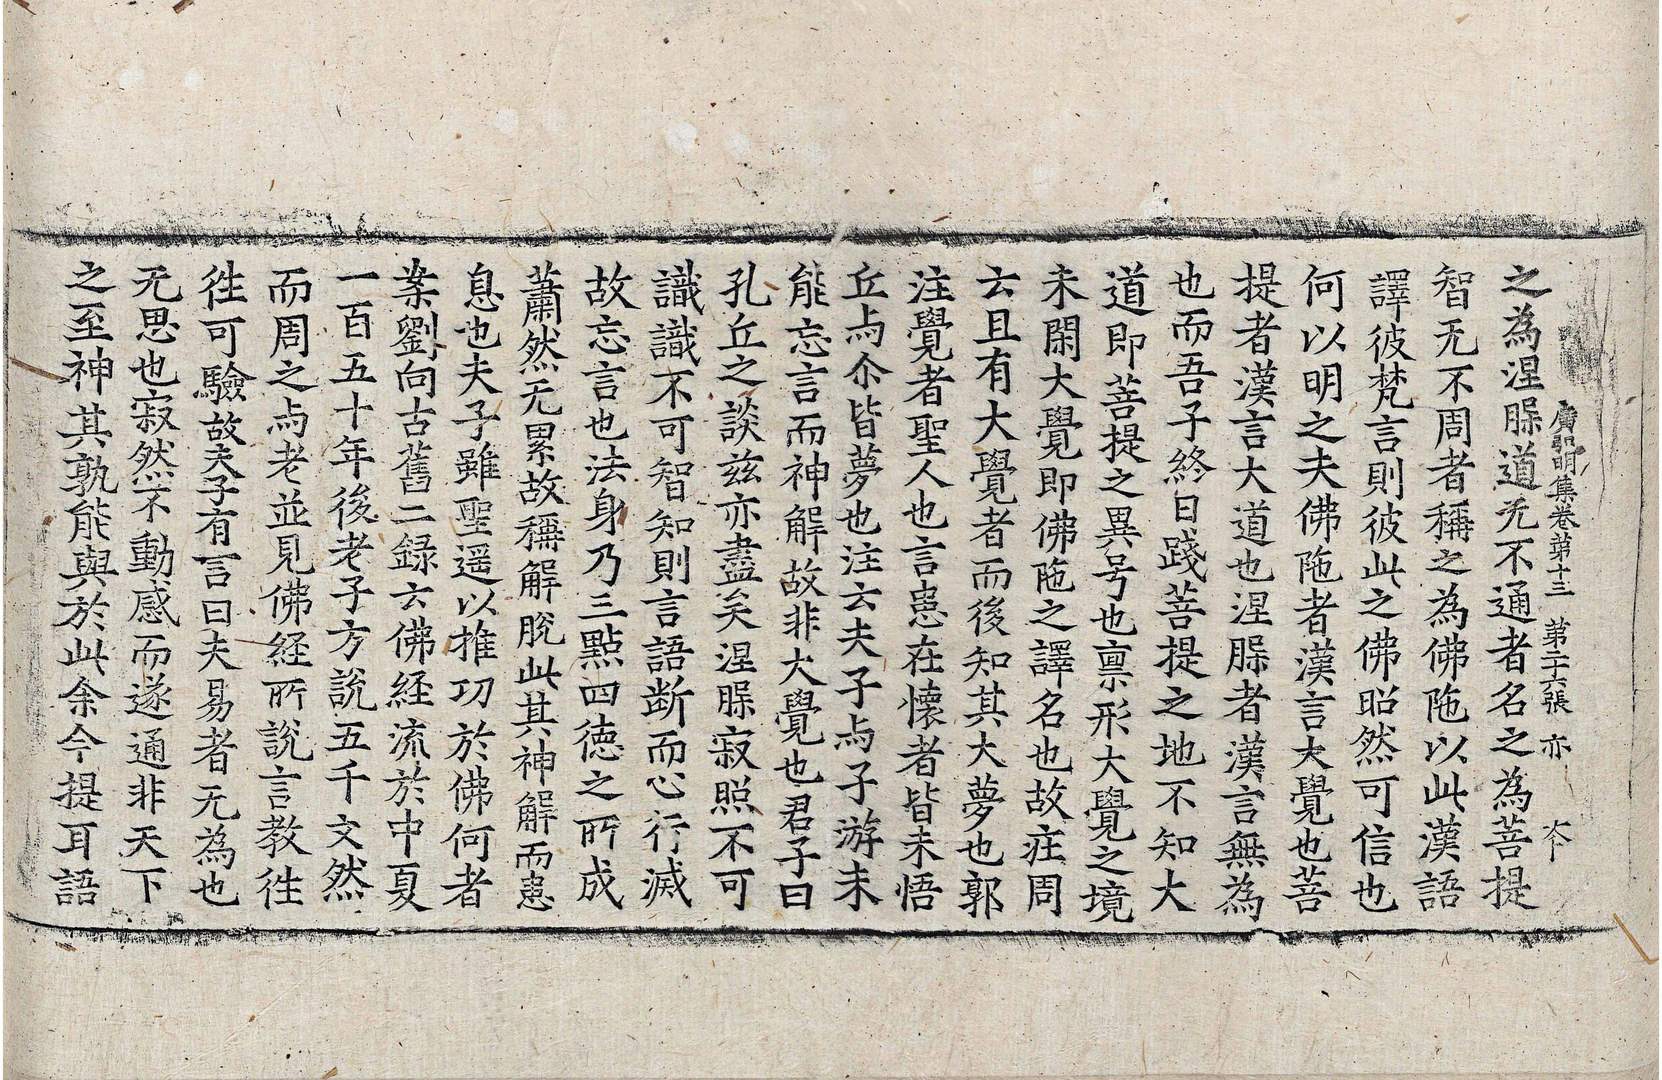 之為涅䐉道无不通者名之為菩提
廣弘明集卷第十三 第二十六張 亦
智无不周者稱之為佛陁以此漢語
譯彼梵言則彼此之佛昭然可信也
何以明之夫佛陁者漢言大覺也菩
提者漢言大道也涅䐉者漢言無為
也而吾子終日踐菩提之地不知大
道即菩提之異号也稟形大覺之境
未閑大覺即佛陁之譯名也故莊周
云且有大覺者而後知其大夢也郭
注覺者聖人也言患在懷者皆未悟
丘与尒皆夢也注云夫子与子游未
能忘言而神解故非大覺也君子曰
孔丘之談茲亦盡矣涅䐉寂照不可
識識不可智知則言語断而心行滅
故忘言也法身乃三點四德之所成
蕭然无累故稱解脫此其神解而患
息也夫子雖聖遥以推功於佛何者
案劉向古舊二録云佛経流於中夏
一百五十年後老子方說五千文然
而周之与老並見佛経所說言教徃
徃可驗故夫子有言曰夫易者无為也
无思也寂然不動感而遂通非天下
之至神其孰能與於此余今提耳語